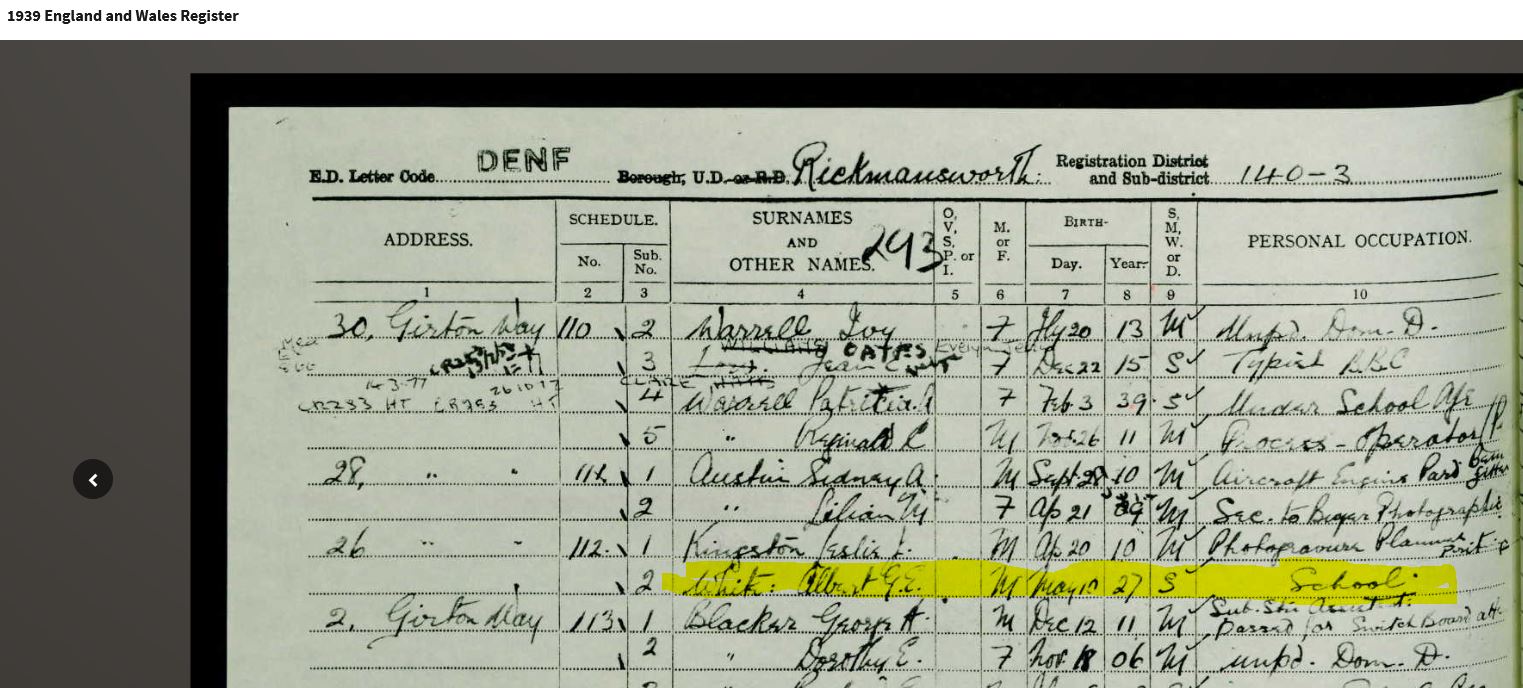 1939 England and Wales Register
E.D. Letter Code DENF Borough, U.D. or R.D. Rickmansworth: Registration District and Sub-district 140-3
ADDRESS. SCHEDULE. No. Sub. No. SURNAMES AND OTHER NAMES. 293 O, V, S, P. or I. M. or F. BIRTH- Day. Year- S, M, W. or D. PERSONAL OCCUPATION.
1 2 3 4 5 6 7 8 9 10
30, Girton Way 110 2 Warrell Ivy F Jly 20 13 M Unpd. Dom. D.
WILLIAMS OATES Evelyn
3 Jean F Dec 22 15 S Typist BBC
14-3-77 26 10 17 CLAIRE
CR283 HT CR283 HT 4 Warrell Patricia A F Feb 3 39 S Under School Age
5 " Reginald C M 26 11 M Process - Operator
28, " " 111 1 Austin Sidney A. M Sept 28 10 M Aircraft Engine Part
2 " Lilian M F Ap 21 09 M Sec. to Photographic
26 " " 112. 1 Kingston Leslie M Ap 20 10 M Photogravure Planner
2 White: Albert G.E. M May 10 27 S School
2, Girton Way 113 1 Blacker George A. M Dec 12 11 M Sub. Stn Assistant: Passed for Switch Board att
2 " Dorothy E. F Nov 18 06 M unpd. Dom. D.